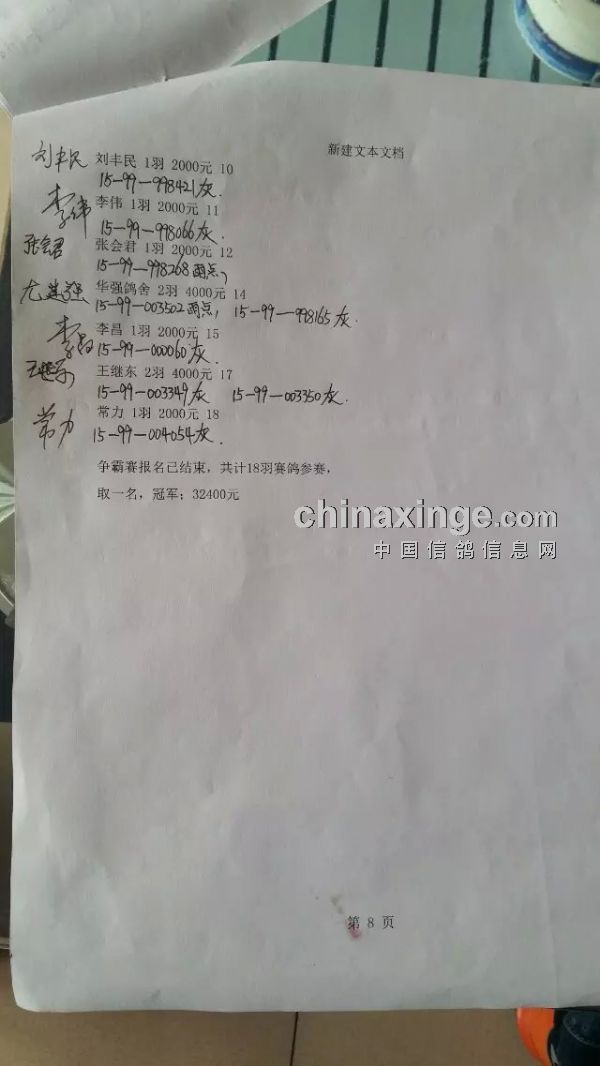 新建文本文档
刘丰民 刘丰民 1羽 2000元 10
15-99-998421灰.
李伟 李伟 1羽 2000元 11
15-99-998066灰.
张会君 张会君 1羽 2000元 12
15-99-998268雨点,
尤建强 华强鸽舍 2羽 4000元 14
15-99-003502雨点, 15-99-998165灰.
李昌 李昌 1羽 2000元 15
15-99-000060灰.
王继东 王继东 2羽 4000元 17
15-99-003349灰 15-99-003350灰.
常力 常力 1羽 2000元 18
15-99-004054灰.
争霸赛报名已结束，共计18羽赛鸽参赛，
取一名，冠军；32400元
chinaxinge.com
中国信鸽信息网
第 8 页